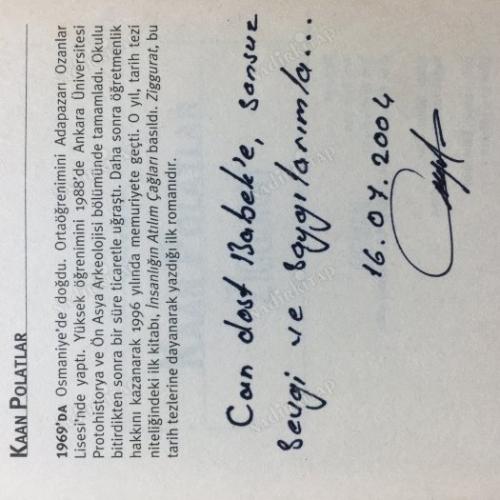 KAAN POLATLAR
1969'DA Osmaniye'de doğdu. Ortaöğrenimini Adapazarı Ozanlar
Lisesi'nde yaptı. Yüksek öğrenimini 1988'de Ankara Üniversitesi
Protohistorya ve Ön Asya Arkeolojisi bölümünde tamamladı. Okulu
bitirdikten sonra bir süre ticaretle uğraştı. Daha sonra öğretmenlik
hakkını kazanarak 1996 yılında memuriyete geçti. O yıl, tarih tezi
niteliğindeki ilk kitabı, İnsanlığın Atılım Çağları basıldı. Ziggurat, bu
tarih tezlerine dayanarak yazdığı ilk romanıdır.
Can dost Babek'e, sonsuz
sevgi ve saygılarımla...
16.07.2004